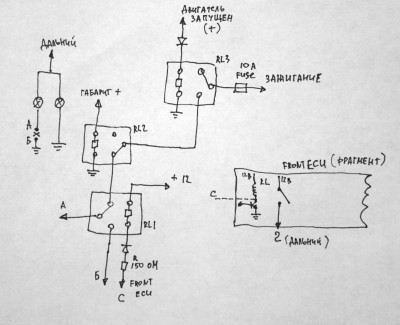 ДВИГАТЕЛЬ
ЗАПУЩЕН
(+)
ДАЛЬНИЙ
RL3
10A
FUSE
ЗАЖИГАНИЕ
ГАБАРИТ +
А
Б
RL2
FRONT ECU (ФРАГМЕНТ)
12В
RL
12В
С
+ 12
А
RL1
R
150 ОМ
Б
С
FRONT
ECU
2 (ДАЛЬНИЙ)